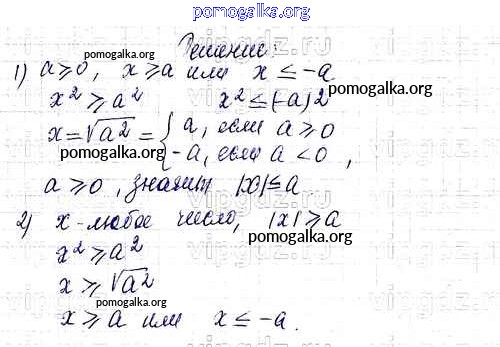 pomogalka.org
Решение:
pomogalka.org
1) a ⩾ 0, x ⩾ a или x ≤ -a
x² ⩾ a² x² ≤ (-a)2
pomogalka.org
x = √a² = { a, если a ⩾ 0
-a, если a < 0 ,
pomogalka.org
a ⩾ 0, значит |x| ≤ a
2) x - любое число, |x| ⩾ a
pomogalka.org
x² ⩾ a²
x ⩾ √a²
pomogalka.org
x ⩾ a или x ≤ -a.